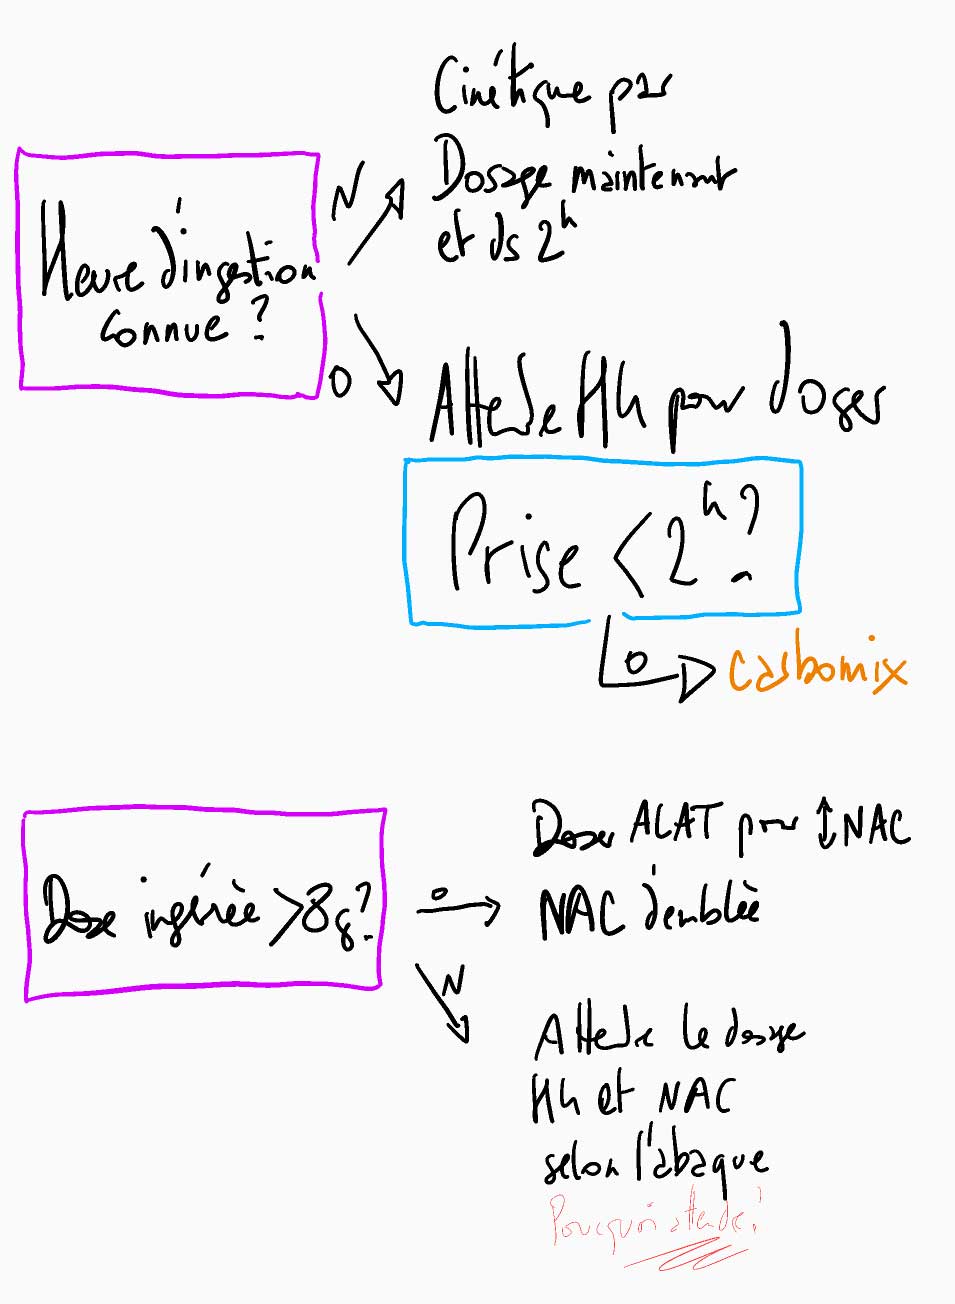 Cinétique par
Dosage maintenant
et ds 2h
N
Heure d'ingestion
connue ?
O
Attendre H4 pour doser
Prise < 2h ?
O
carbomix
Doser ALAT pour ↕ NAC
Dose ingérée > 8g ?
O
NAC d'emblée
N
Attendre le dosage
H4 et NAC
selon l'abaque
Pourquoi attendre ?